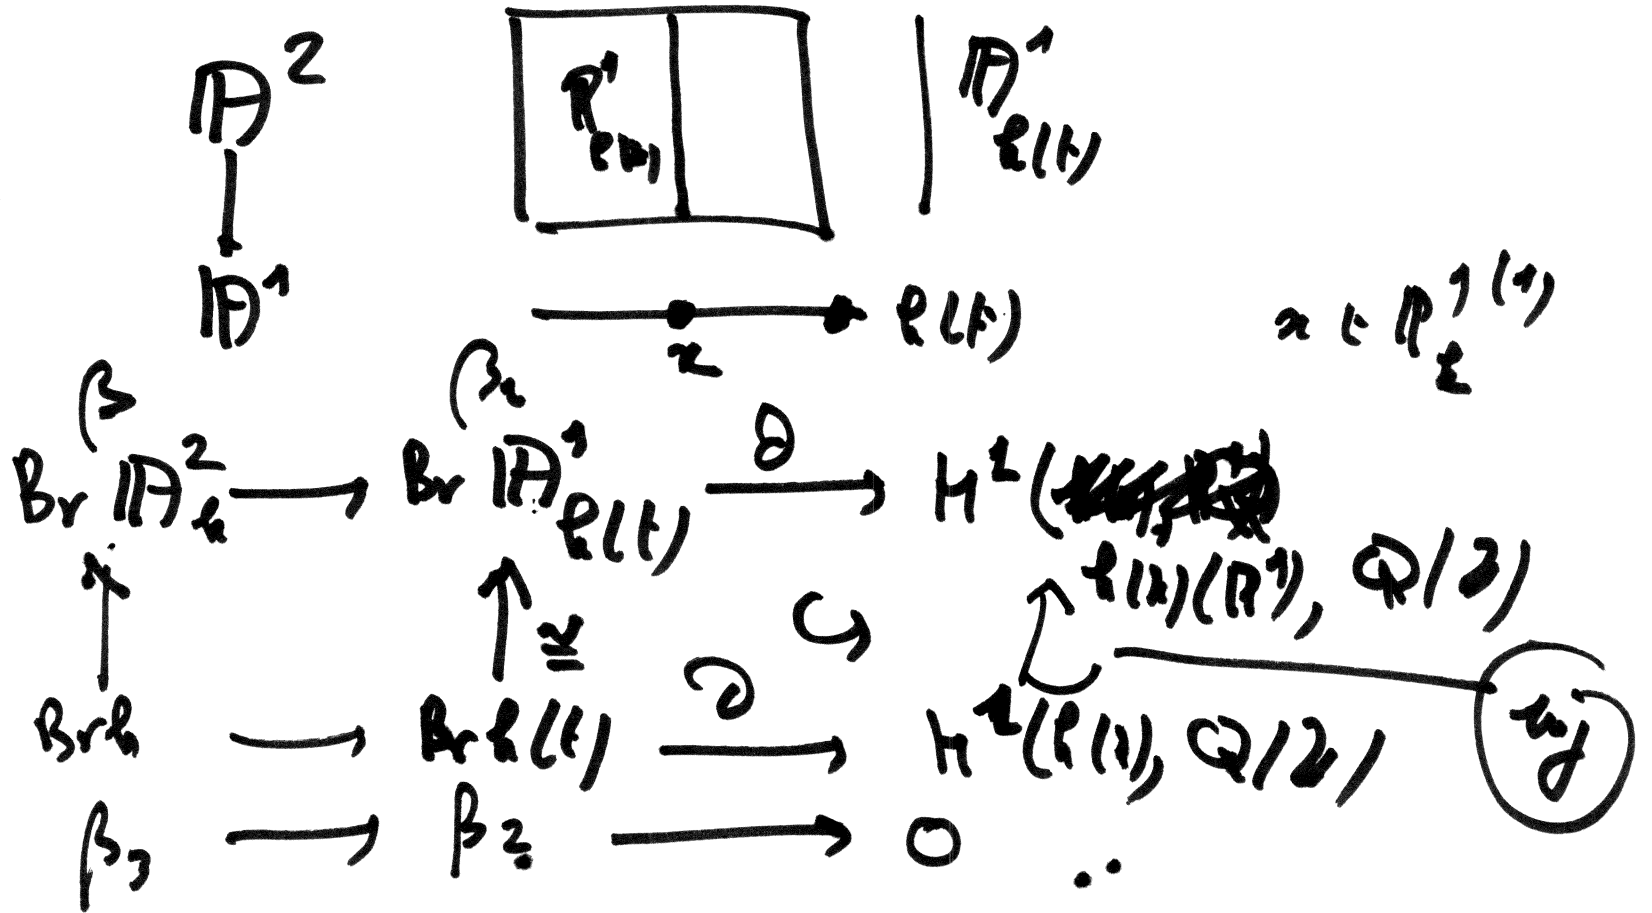 𝔸²
ℙ¹
𝔸¹
k(t)
𝔸¹
x
k(t)
x ∈ ℙ¹⁽¹⁾
k
β
β₁
Br 𝔸²ₖ → Br 𝔸¹ ∂ → H¹(
k(t)
k(x)(ℙ¹), Q/Z)
≅
Br k → Br k(t) ∂ → H¹(k(x), Q/Z)
inj
β₃ → β₂ → 0